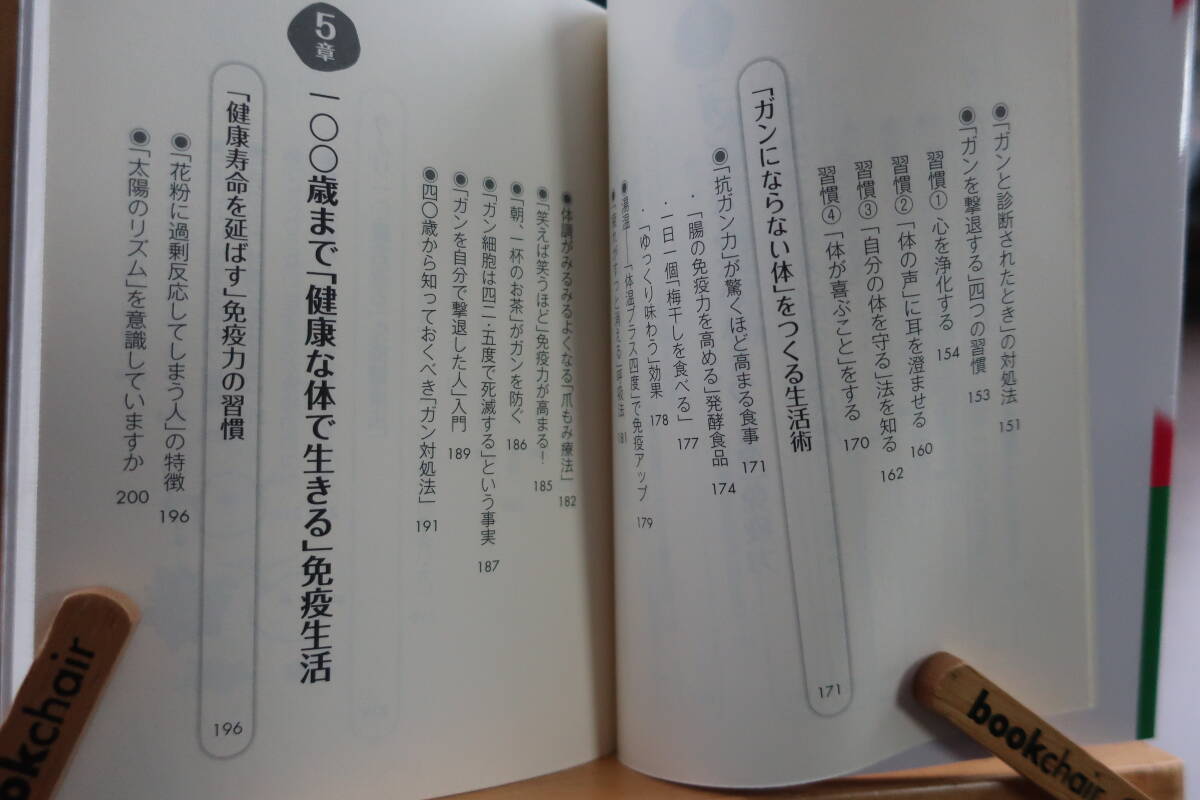 ●「ガンと診断されたとき」の対処法 151
●「ガンを撃退する」四つの習慣 153
習慣① 心を浄化する 154
習慣② 「体の声」に耳を澄ませる 160
習慣③ 「自分の体を守る」法を知る 162
習慣④ 「体が喜ぶこと」をする 170
「ガンにならない体」をつくる生活術 171
●「抗ガン力」が驚くほど高まる食事 171
・「腸の免疫力を高める」発酵食品 174
・一日一個「梅干しを食べる」 177
・「ゆっくり味わう」効果 178
●湯温――「体温プラス四度」で免疫アップ 179
呼吸法 181
●体調がみるみるよくなる「爪もみ療法」 182
●「笑えば笑うほど」免疫力が高まる! 185
●「朝、一杯のお茶」がガンを防ぐ 186
●「ガン細胞は四二・五度で死滅する」という事実 187
●「ガンを自分で撃退した人」入門 189
●四〇歳から知っておくべき「ガン対処法」 191
5章 一〇〇歳まで「健康な体で生きる」免疫生活
「健康寿命を延ばす」免疫力の習慣 196
●「花粉に過剰反応してしまう人」の特徴 196
●「太陽のリズム」を意識していますか 200
bookchair
okchair